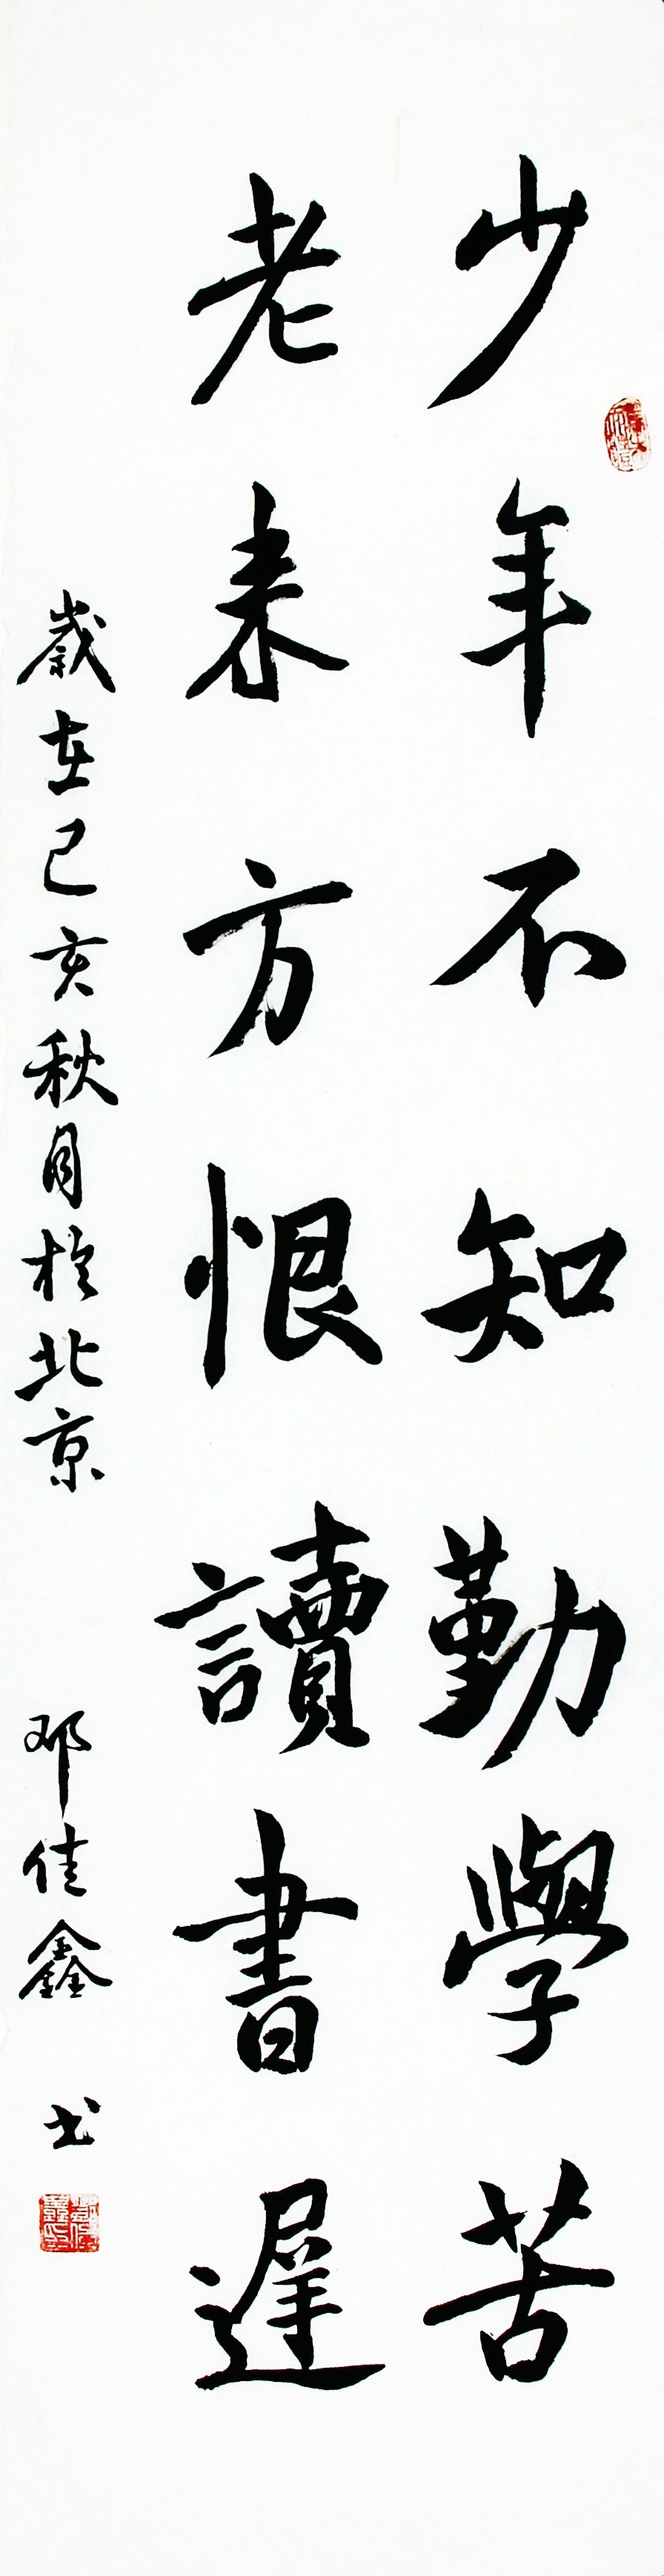 少年不知勤學苦
老来方恨讀書遲
歲在己亥秋月於北京
邓佳鑫书